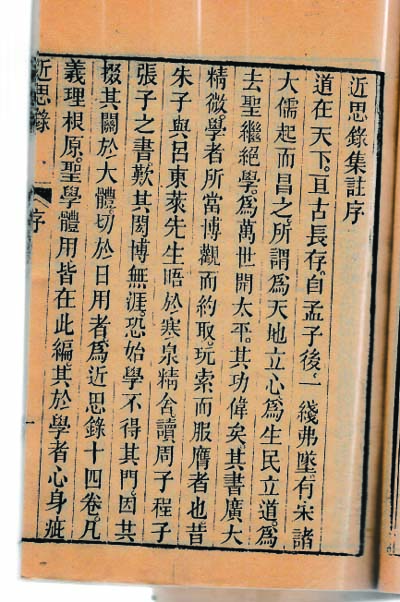 近思錄集註序
道在天下。亘古長存。自孟子後。一綫弗墜。有宋諸
大儒起而昌之。所謂爲天地立心。爲生民立道。爲
去聖繼絕學。爲萬世開太平。其功偉矣。其書廣大
精微。學者所當博觀而約取。玩索而服膺者也。昔
朱子與呂東萊先生晤於寒泉精舍。讀周子程子
張子之書。歎其閎博無涯。恐始學不得其門。因共
掇其關於大體切於日用者。爲近思錄十四卷。凡
義理根原。聖學體用。皆在此編。其於學者心身疵
近思錄 序 一